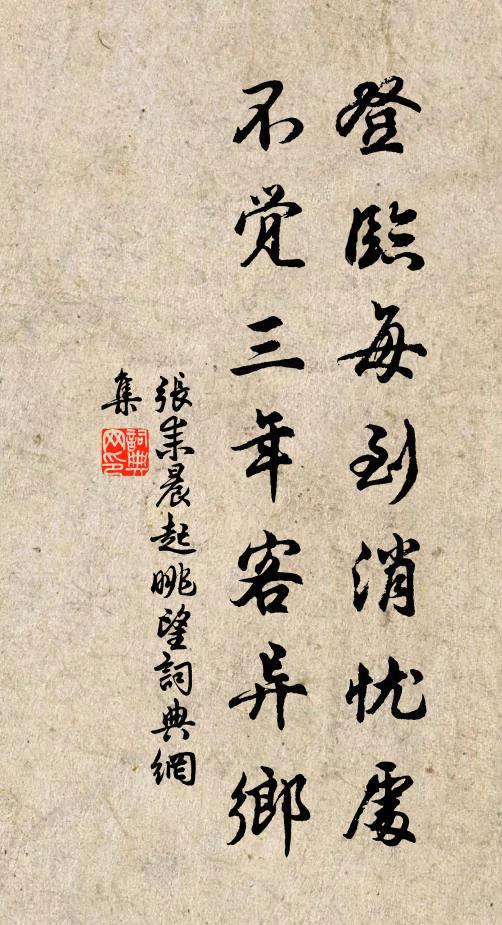 登臨每到消忧處
不觉三年客异鄉
張耒晨起眺望詞典網
集
詞典
网印